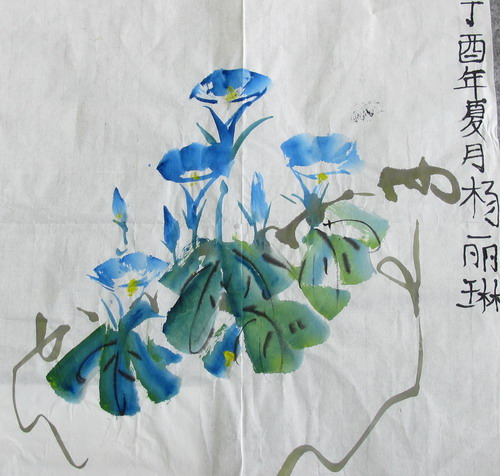 丁酉年夏月杨丽琳